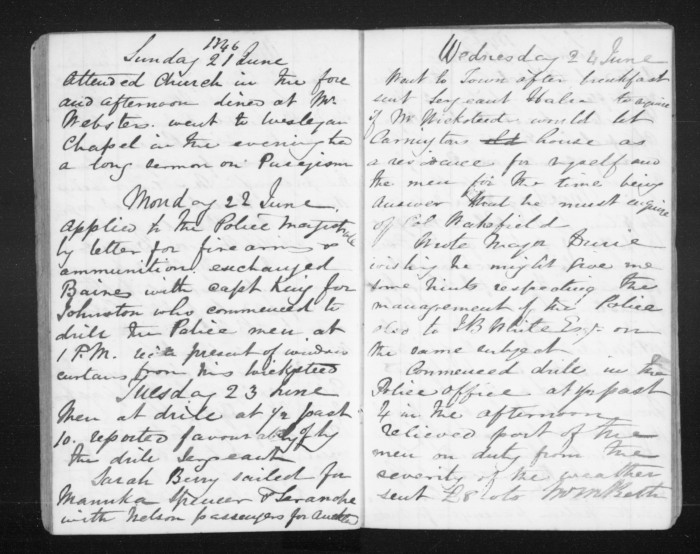 1846
Sunday 21 June
Attended Church in the fore
and afternoon dined at Mr
Websters. went to Wesleyan
Chapel in the evening he
a long sermon on Puseyism
Monday 22 June
Applied to the Police Magistrate
by letter for fire arms &
ammunition. exchanged
Baines with Capt King for
Johnston who commenced to
drill the Police men at
1 P.M. rec'd present of window
curtains from Mrs Wicksteed
Tuesday 23 June
Men at drill at 1/2 past
10. reported favourably of by
the drill Sergeant
Sarah Berry sailed for
Manuka Spencer & Taranake
with Nelson passengers for
Wednesday 24 June
Went to Town after breakfast
sent Sergeant to enquire
if Mr Wicksteed would let
Carringtons old house as
a residence for myself and
the men for the time being
Answer that he must enquire
of Col. Wakefield
Wrote Major Durie
wishing he might give me
some hints respecting the
management of the Police
also to J B White Esqr on
the same subject
Commenced drill in the
Police Office at 1/2 past
4 in the afternoon
relieved part of the
men on duty from the
severity of the weather
sent £8